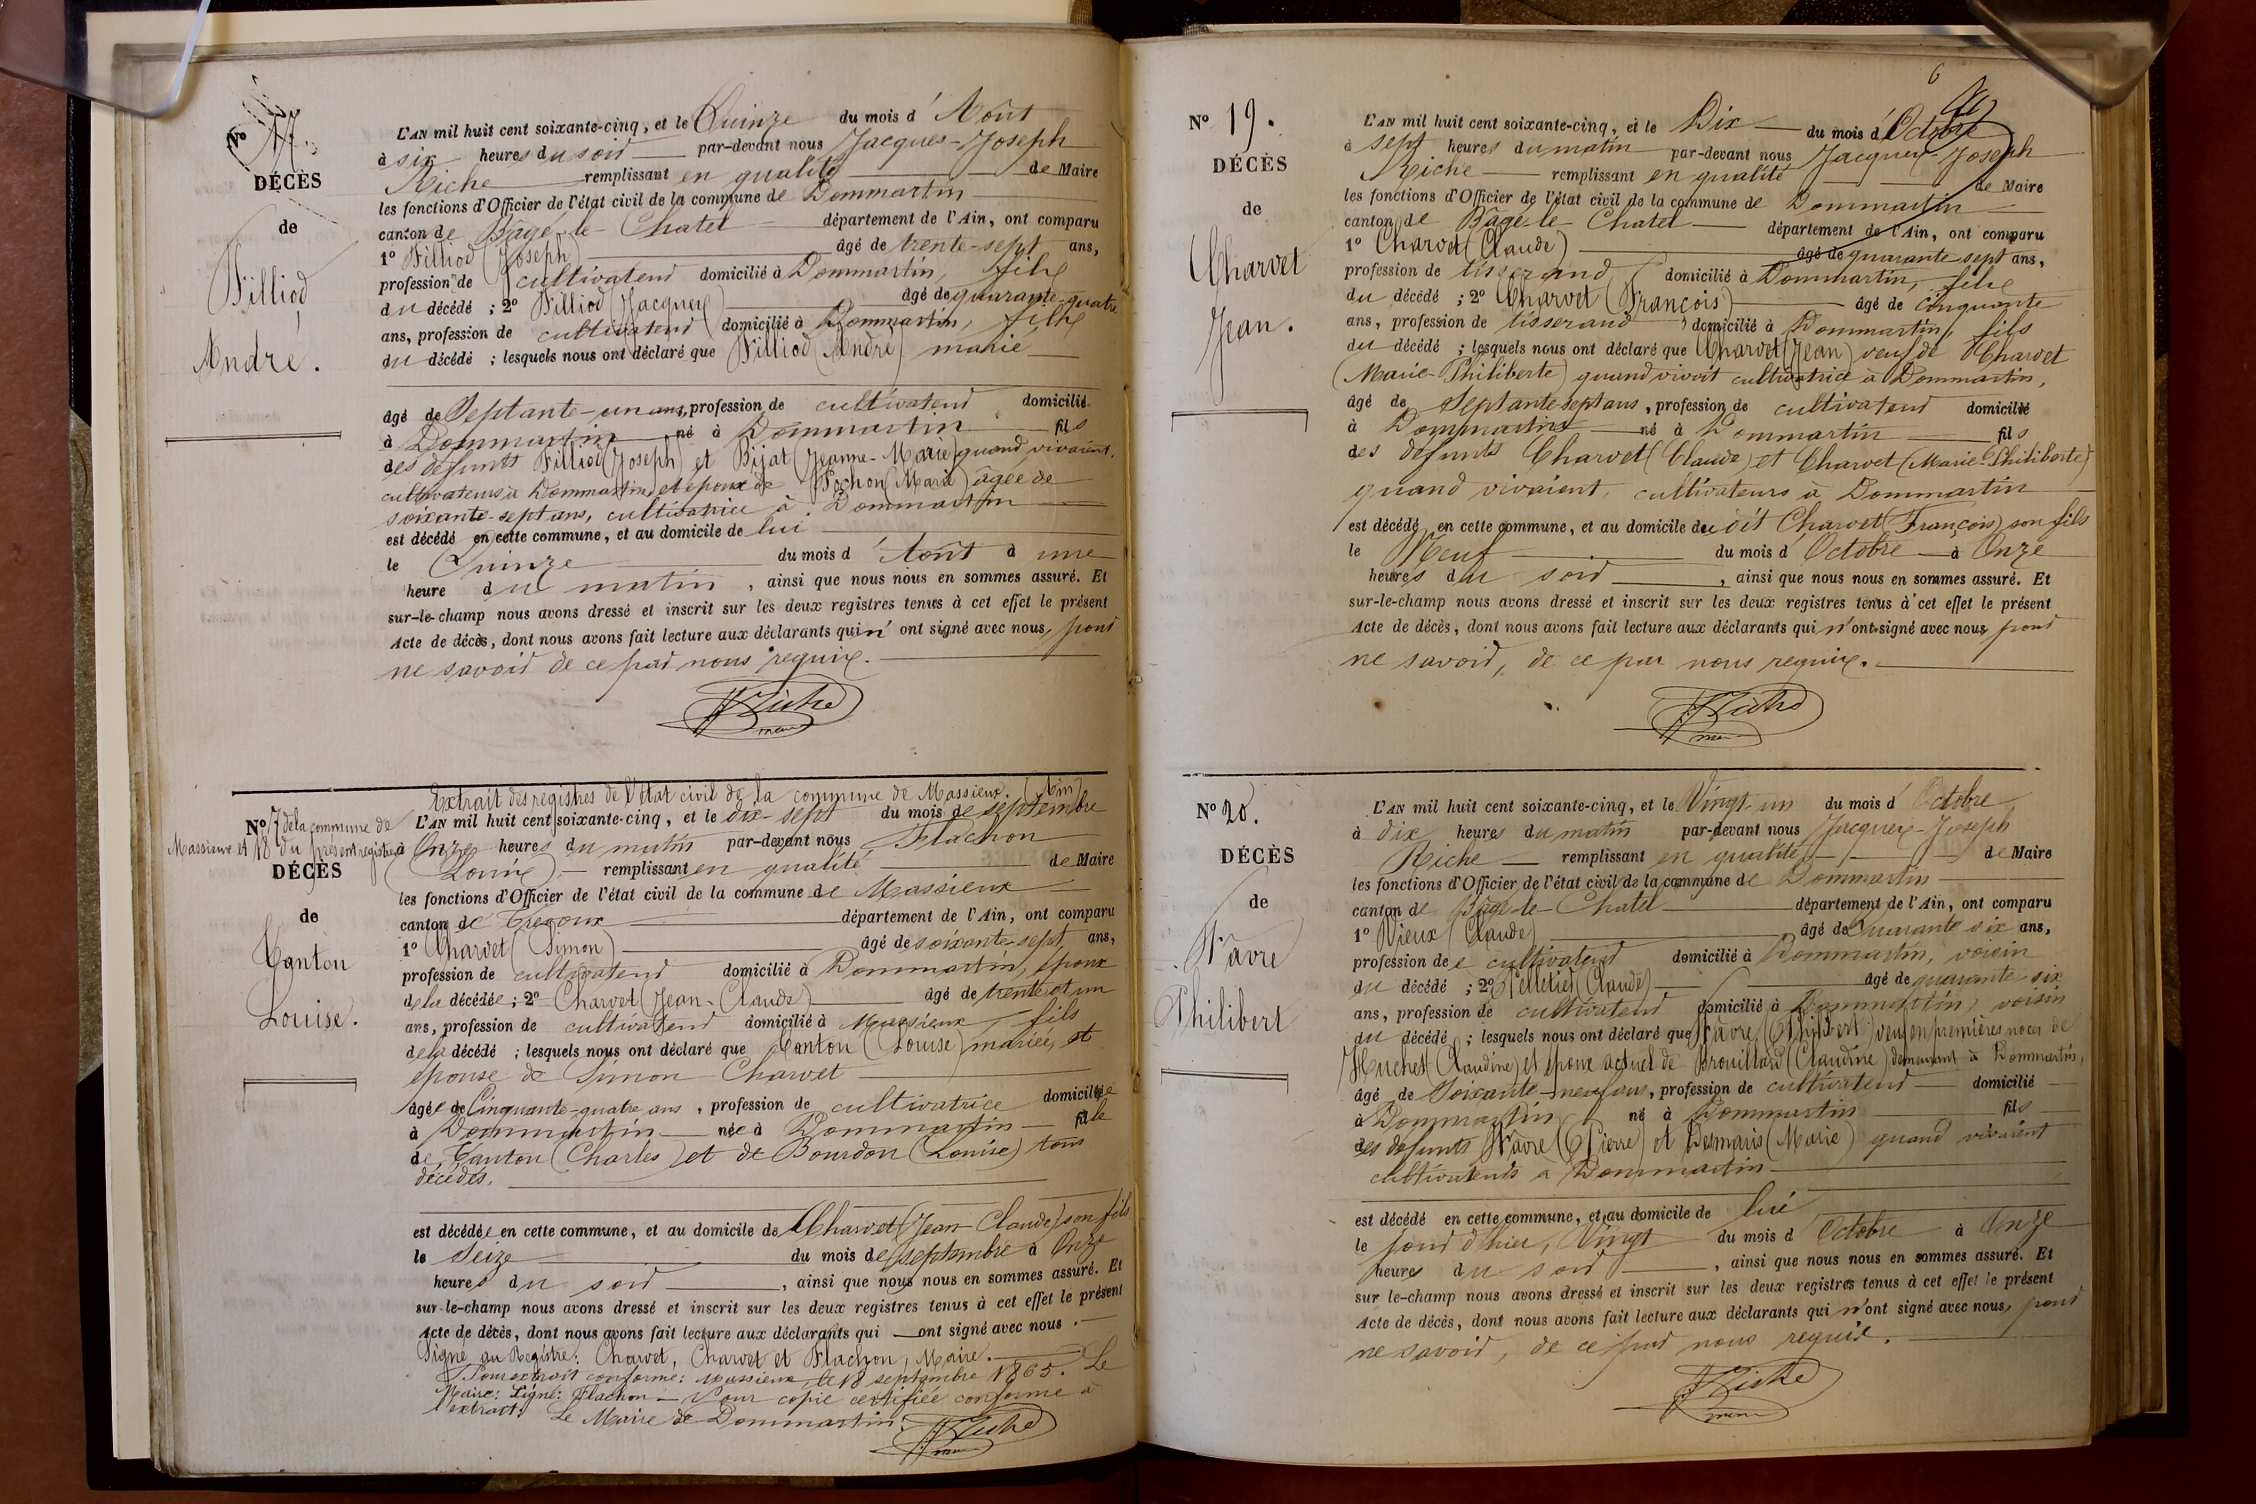 Nº 17.
DÉCÈS
de
Filliod
André.
L'AN mil huit cent soixante-cinq, et le Quinze du mois d'Août
à six heures du soir par-devant nous Jacques-Joseph
Riche remplissant en qualité de Maire
les fonctions d'Officier de l'état civil de la commune de Dommartin
canton de Bâgé-le-Chatel département de l'Ain, ont comparu
1º Filliod (Joseph) âgé de trente-sept ans,
profession de cultivateur domicilié à Dommartin, fils
du décédé ; 2º Filliod (Jacques) âgé de quarante-quatre
ans, profession de cultivateur domicilié à Dommartin, fils
du décédé ; lesquels nous ont déclaré que Filliod (André) marié
âgé de Septante-un ans, profession de cultivateur domicilié
à Dommartin né à Dommartin fils
des défunts Filliod (Joseph) et Bijat (Jeanne-Marie) quand vivaient
cultivateurs à Dommartin et époux de Pochon (Marie) âgée de
soixante-sept ans, cultivatrice à Dommartin
est décédé en cette commune, et au domicile de lui
le Quinze du mois d'Août à une
heure du matin, ainsi que nous nous en sommes assuré. Et
sur-le-champ nous avons dressé et inscrit sur les deux registres tenus à cet effet le présent
Acte de décès, dont nous avons fait lecture aux déclarants qui n'ont signé avec nous, pour
ne savoir de ce par nous requis.
Riche
maire
Extrait des registres de l'état civil de la commune de Massieux. (Ain)
Nº 17 de la commune de
Massieux et 18 du présent registre
DÉCÈS
de
Canton
Louise.
L'AN mil huit cent soixante-cinq, et le dix-sept du mois de septembre
à Onze heures du matin par-devant nous Flachon
(Louis) remplissant en qualité de Maire
les fonctions d'Officier de l'état civil de la commune de Massieux
canton de Trévoux département de l'Ain, ont comparu
1º Charvet (Simon) âgé de soixante-sept ans,
profession de cultivateur domicilié à Dommartin, époux
de la décédée ; 2º Charvet (Jean-Claude) âgé de trente et un
ans, profession de cultivateur domicilié à Massieux, fils
de la décédé ; lesquels nous ont déclaré que Canton (Louise) mariée, et
épouse de Simon Charvet
âgée de Cinquante-quatre ans, profession de cultivatrice domiciliée
à Dommartin née à Dommartin fille
de Canton (Charles) et de Bourdon (Louise) tous
décédés.
est décédée en cette commune, et au domicile de Charvet (Jean-Claude) son fils
le Seize du mois de septembre à Onze
heures du soir, ainsi que nous nous en sommes assuré. Et
sur-le-champ nous avons dressé et inscrit sur les deux registres tenus à cet effet le présent
Acte de décès, dont nous avons fait lecture aux déclarants qui ont signé avec nous.
Signé au Registre : Charvet, Charvet et Flachon, Maire.
Pour extrait conforme : Massieux, le 18 septembre 1865. Le
Maire : Signé : Flachon — Pour copie certifiée conforme à
l'extrait. Le Maire de Dommartin.
Riche
maire
6
Nº 19.
DÉCÈS
de
Charvet
Jean.
L'AN mil huit cent soixante-cinq, et le Dix du mois d'Octobre
à sept heures du matin par-devant nous Jacques-Joseph
Riche remplissant en qualité de Maire
les fonctions d'Officier de l'état civil de la commune de Dommartin
canton de Bâgé-le-Chatel département de l'Ain, ont comparu
1º Charvet (Claude) âgé de quarante-sept ans,
profession de tisserand domicilié à Dommartin, fils
du décédé ; 2º Charvet (François) âgé de cinquante
ans, profession de tisserand domicilié à Dommartin, fils
du décédé ; lesquels nous ont déclaré que Charvet (Jean) veuf de Charvet
(Marie-Philiberte) quand vivoit cultivatrice à Dommartin,
âgé de Septante sept ans, profession de cultivateur domicilié
à Dommartin né à Dommartin fils
des défunts Charvet (Claude) et Charvet (Marie-Philiberte)
quand vivaient, cultivateurs à Dommartin
est décédé en cette commune, et au domicile du dit Charvet (François) son fils
le Neuf du mois d'Octobre à Onze
heures du soir, ainsi que nous nous en sommes assuré. Et
sur-le-champ nous avons dressé et inscrit sur les deux registres tenus à cet effet le présent
Acte de décès, dont nous avons fait lecture aux déclarants qui n'ont signé avec nous, pour
ne savoir, de ce par nous requis.
Riche
maire
Nº 20.
DÉCÈS
de
Favre
Philibert
L'AN mil huit cent soixante-cinq, et le Vingt-un du mois d'Octobre
à dix heures du matin par-devant nous Jacques-Joseph
Riche remplissant en qualité de Maire
les fonctions d'Officier de l'état civil de la commune de Dommartin
canton de Bâgé-le-Chatel département de l'Ain, ont comparu
1º Vieux (Claude) âgé de Quarante six ans,
profession de cultivateur domicilié à Dommartin, voisin
du décédé ; 2º Pelletier (Claude) âgé de quarante-six
ans, profession de cultivateur domicilié à Dommartin, voisin
du décédé ; lesquels nous ont déclaré que Favre (Philibert) veuf en premières noces de
Huchet (Claudine) et époux actuel de Brouillard (Claudine) demeurant à Dommartin,
âgé de Soixante-neuf ans, profession de cultivateur domicilié
à Dommartin né à Dommartin fils
des défunts Favre (Pierre) et Desmaris (Marie) quand vivaient
cultivateurs à Dommartin
est décédé en cette commune, et au domicile de lui
le jour d'hier, Vingt du mois d'Octobre à Onze
heures du soir, ainsi que nous nous en sommes assuré. Et
sur le-champ nous avons dressé et inscrit sur les deux registres tenus à cet effet le présent
Acte de décès, dont nous avons fait lecture aux déclarants qui n'ont signé avec nous, pour
ne savoir, de ce par nous requis.
Riche
maire